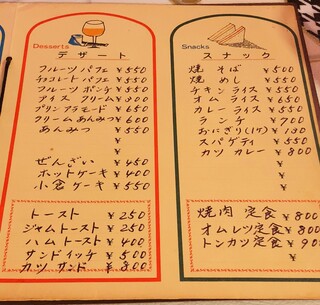 Desserts
デザート
フルーツ パフェ ¥550
チョコレート パフェ ¥550
フルーツ ポンチ ¥550
アイス クリーム ¥300
プリンアラモード ¥650
クリームあんみつ ¥600
あんみつ ¥550
¥
ぜんざい ¥450
ホットケーキ ¥400
小倉ケーキ ¥550
トースト ¥250
ジャムトースト ¥250
ハムトースト ¥400
サンドイッチ ¥500
カツ サンド ¥800
Snacks
スナック
焼 そば ¥500
焼 めし ¥550
チキン ライス ¥550
オム ライス ¥650
カレー ライス ¥550
ランチ ¥700
おにぎり(1ケ) ¥130
スパゲティ ¥550
カツ カレー ¥800
¥
¥
¥
焼肉 定食 ¥800
オムレツ 定食 ¥800
トンカツ 定食 ¥900